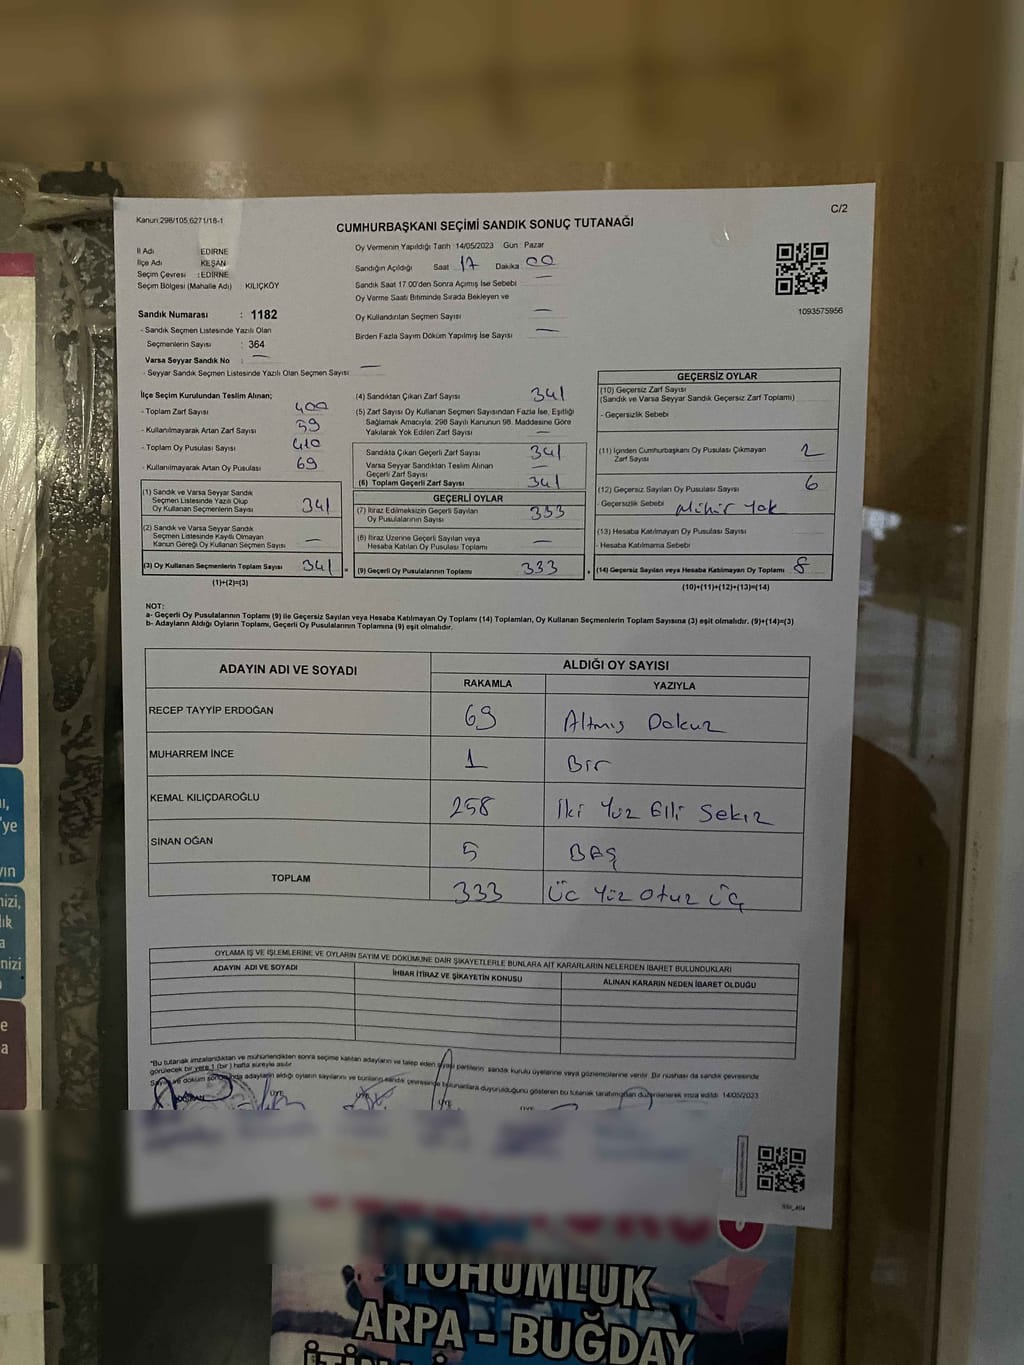 Kanun:298/105,6271/18-1
C/2
CUMHURBAŞKANI SEÇİMİ SANDIK SONUÇ TUTANAĞI
İl Adı EDİRNE
İlçe Adı KEŞAN
Seçim Çevresi : EDİRNE
Seçim Bölgesi (Mahalle Adı) KILIÇKÖY
Oy Vermenin Yapıldığı Tarih 14/05/2023 Gün : Pazar
Sandığın Açıldığı Saat 17 Dakika 00
Sandık Saat 17.00'den Sonra Açımış İse Sebebi —
Oy Verme Saati Bitiminde Sırada Bekleyen ve
Oy Kullandırılan Seçmen Sayısı —
Birden Fazla Sayım Döküm Yapılmış İse Sayısı —
1093575956
Sandık Numarası : 1182
- Sandık Seçmen Listesinde Yazılı Olan
Seçmenlerin Sayısı : 364
Varsa Seyyar Sandık No : —
- Seyyar Sandık Seçmen Listesinde Yazılı Olan Seçmen Sayısı : —
İlçe Seçim Kurulundan Teslim Alınan;
- Toplam Zarf Sayısı 400
- Kullanılmayarak Artan Zarf Sayısı 59
- Toplam Oy Pusulası Sayısı 410
- Kullanılmayarak Artan Oy Pusulası 69
(1) Sandık ve Varsa Seyyar Sandık
Seçmen Listesinde Yazılı Olup
Oy Kullanan Seçmenlerin Sayısı 341
(2) Sandık ve Varsa Seyyar Sandık
Seçmen Listesinde Kayıtlı Olmayan
Kanun Gereği Oy Kullanan Seçmen Sayısı —
(3) Oy Kullanan Seçmenlerin Toplam Sayısı 341
(1)+(2)=(3)
(4) Sandıktan Çıkan Zarf Sayısı 341
(5) Zarf Sayısı Oy Kullanan Seçmen Sayısından Fazla İse, Eşitliği
Sağlamak Amacıyla; 298 Sayılı Kanunun 98. Maddesine Göre
Yakılarak Yok Edilen Zarf Sayısı —
Sandıkta Çıkan Geçerli Zarf Sayısı 341
Varsa Seyyar Sandıktan Teslim Alınan
Geçerli Zarf Sayısı —
(6) Toplam Geçerli Zarf Sayısı 341
GEÇERLİ OYLAR
(7) İtiraz Edilmeksizin Geçerli Sayılan
Oy Pusulalarının Sayısı 333
(8) İtiraz Üzerine Geçerli Sayılan veya
Hesaba Katılan Oy Pusulası Toplamı —
(9) Geçerli Oy Pusulalarının Toplamı 333
GEÇERSİZ OYLAR
(10) Geçersiz Zarf Sayısı
(Sandık ve Varsa Seyyar Sandık Geçersiz Zarf Toplamı)
- Geçersizlik Sebebi
(11) İçinden Cumhurbaşkanı Oy Pusulası Çıkmayan
Zarf Sayısı 2
(12) Geçersiz Sayılan Oy Pusulası Sayısı 6
- Geçersizlik Sebebi Mühür Yok
(13) Hesaba Katılmayan Oy Pusulası Sayısı
- Hesaba Katılmama Sebebi
(14) Geçersiz Sayılan veya Hesaba Katılmayan Oy Toplamı 8
(10)+(11)+(12)+(13)=(14)
NOT:
a- Geçerli Oy Pusulalarının Toplamı (9) ile Geçersiz Sayılan veya Hesaba Katılmayan Oy Toplamı (14) Toplamları, Oy Kullanan Seçmenlerin Toplam Sayısına (3) eşit olmalıdır. (9)+(14)=(3)
b- Adayların Aldığı Oyların Toplamı, Geçerli Oy Pusulalarının Toplamına (9) eşit olmalıdır.
ADAYIN ADI VE SOYADI
ALDIĞI OY SAYISI
RAKAMLA YAZIYLA
RECEP TAYYİP ERDOĞAN 69 Altmış Dokuz
MUHARREM İNCE 1 Bir
KEMAL KILIÇDAROĞLU 258 İki Yüz Elli Sekiz
SİNAN OĞAN 5 BEŞ
TOPLAM 333 Üç Yüz Otuz Üç
OYLAMA İŞ VE İŞLEMLERİNE VE OYLARIN SAYIM VE DÖKÜMÜNE DAİR ŞİKAYETLERLE BUNLARA AİT KARARLARIN NELERDEN İBARET BULUNDUKLARI
ADAYIN ADI VE SOYADI
İHBAR İTİRAZ VE ŞİKAYETİN KONUSU
ALINAN KARARIN NEDEN İBARET OLDUĞU
*Bu tutanak imzalandıktan ve mühürlendikten sonra seçime katılan adayların ve talep eden siyasi partilerin sandık kurulu üyelerine veya gözlemcilerine verilir. Bir nüshası da sandık çevresinde
görülecek bir yere 1 (bir) hafta süreyle asılır.
Sayım ve döküm sonucunda adayların aldığı oyların sayılarını ve bunların sandık çevresinde bulunanlara duyurulduğunu gösteren bu tutanak tarafımızdan düzenlenerek imza edildi. 14/05/2023
ÜYE
ÜYE
ÜYE
ÜYE
TOHUMLUK
ARPA - BUĞDAY